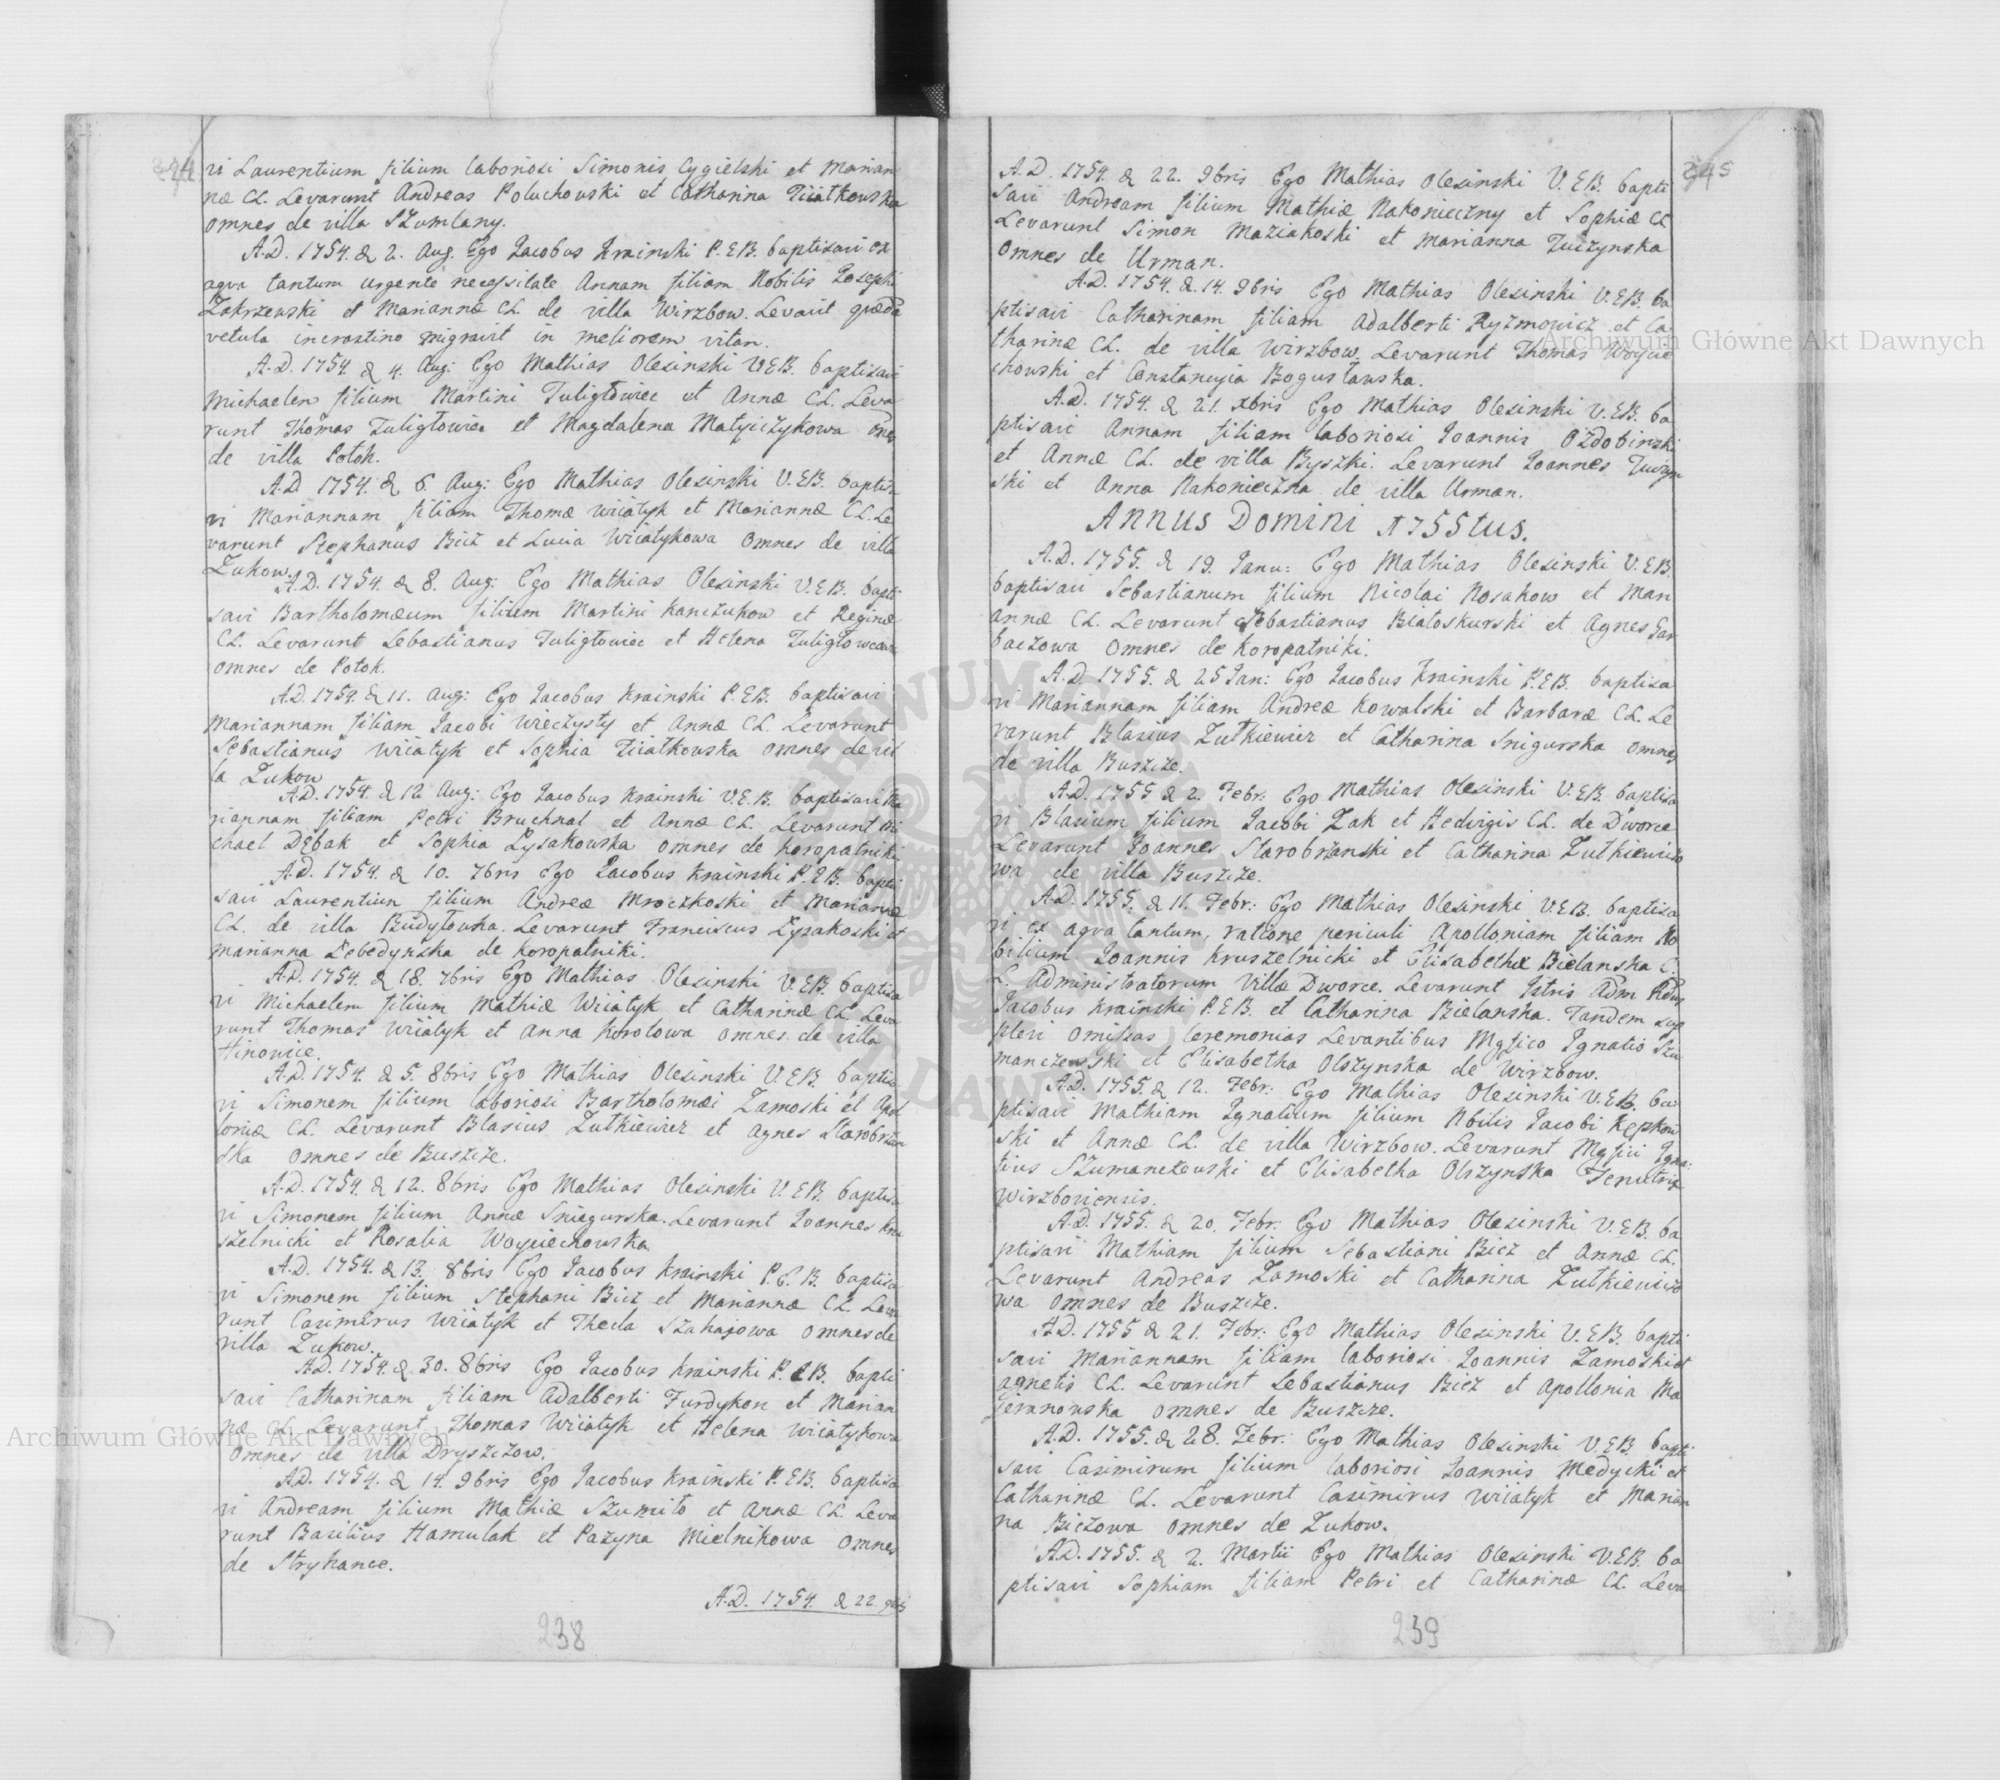 244
vi Laurentium filium laboriosi Simonis Cygielski et Marian
næ CL. Levarunt Andreas Poluchowski et Catharina
omnes de villa Szumlany.
A.D. 1754. d 2. Aug. Ego Jacobus Krainski P. EB. baptisavi ex
aqva tantum urgente necessitate Annam filiam Nobilis Josephi
Zakrzewski et Mariannæ CL. de villa Wirzbow. Levavit quædā
vetula in crastino migravit in meliorem vitam.
A.D. 1754 d 4. Aug: Ego Mathias Olesinski V.EB. baptisavi
Michaelem filium Martini Tuligłowiec et Annæ CL. Leva
runt Thomas Tuligłowiec et Magdalena Matyiczykowa
de villa Potok.
A.D 1754. d 6. Aug: Ego Mathias Olesinski V.EB. baptisa
vi Mariannam filiam Thomæ Wiiatyk et Mariannæ CL. Le
varunt Stephanus Bicz et Lucia Wiiatykowa omnes de villa
Zukow.
A.D. 1754. d 8. Aug: Ego Mathias Olesinski V.EB. bapti
savi Bartholomæum filium Martini Kanczukow et Reginæ
CL. Levarunt Sebastianus Tuligłowiec et Helena
omnes de Potok.
A.D. 1754. d 11. Aug: Ego Jacobus Krainski P.EB. baptisavi
Mariannam filiam Jacobi Wieczysty et Annæ CL. Levarunt
Sebastianus Wiiatyk et Sophia omnes de vil
la Zukow
A.D. 1754. d 12 Aug: Ego Jacobus Krainski V.E.B. baptisavi Ma
riannam filiam Petri Bruchnal et Annæ CL. Levarunt Mi
chael Dębak et Sophia Lysakowska omnes de Koropatniki
A.D. 1754. d 10. 7bris Ego Jacobus Krainski P.EB. bapti
savi Laurentium filium Andreæ Mroczkoski et Mariannæ
CL. de villa Budyłowka. Levarunt Franciscus Lysakoski et
Marianna Lebedynska de Koropatniki.
A.D. 1754. d 18. 7bris Ego Mathias Olesinski V.EB. baptisa
vi Michaelem filium Mathiæ Wiiatyk et Catharinæ CL. Leva
runt Thomas Wiiatyk et Anna Korolowa omnes de villa
Hinowice.
A.D. 1754 d 5. 8bris Ego Mathias Olesinski V.EB. baptisa
vi Simonem filium laboriosi Bartholomæi Zamoski et Apol
loniæ CL. Levarunt Blasius Zutkiewicz et Agnes Starobrzan
ska omnes de Buszcze.
A.D. 1754. d 12. 8bris Ego Mathias Olesinski V.EB. baptisa
vi Simonem filium Annæ Sniegurska. Levarunt Joannes Kru
szelnicki et Rosalia Woyciechowska.
A.D. 1754. d 13. 8bris Ego Jacobus Krainski P.E.B. baptisa
vi Simonem filium Stephani Bicz et Mariannæ CL. Leva
runt Casimirus Wiiatyk et Thecla Szahajowa omnes de
villa Zukow.
A.D. 1754. d 30. 8bris Ego Jacobus Krainski P.EB. bapti
savi Catharinam filiam Adalberti Furdykon et Marian
næ CL. Levarunt Thomas Wiiatyk et Helena Wiiatykowa
omnes de villa Dryszczow.
A.D. 1754. d 14. 9bris Ego Jacobus Krainski P.EB. baptisa
vi Andream filium Mathiæ Szumito et Annæ CL. Leva
runt Basilius Hamulak et Pazyna Mielnikowa omnes
de Stryhance.
A.D. 1754. d 22. 9bris
238
245
A.D. 1754. d 22. 9bris Ego Mathias Olesinski V.EB. bapti
savi Andream filium Mathiæ Nakonieczny et Sophiæ CL
Levarunt Simon Maziakoski et Marianna Tuczynska
omnes de Urman.
A.D. 1754. d. 14. 9bris Ego Mathias Olesinski V.EB. ba
ptisavi Catharinam filiam Adalberti Ryzmowicz et Ca
tharinæ CL. de villa Wirzbow. Levarunt Thomas Woycie
chowski et Constancyia Bogusławska.
A.D. 1754. d 21. Xbris Ego Mathias Olesinski V.EB. ba
ptisavi Annam filiam laboriosi Joannis Ozdobinski
et Annæ CL. de villa Byszki. Levarunt Joannes Tuczyn
ski et Anna Nakonieczna de villa Urman.
Annus Domini 1755tus.
A.D. 1755. d 19. Janu: Ego Mathias Olesinski V.EB.
baptisavi Sebastianum filium Nicolai Kosakow et Mari
annæ CL. Levarunt Sebastianus Białoskurski et Agnes Gar
baczowa omnes de Koropatniki.
A.D. 1755. d 25 Jan: Ego Jacobus Krainski P.EB. baptisa
vi Mariannam filiam Andreæ Kowalski et Barbaræ CL. Le
varunt Blasius Zutkiewicz et Catharina Snigurska omnes
de villa Buszcze.
A.D. 1755 d 2. Febr: Ego Mathias Olesinski V.EB. baptisa
vi Blasium filium Jacobi Zak et Hedvigis CL. de Dworce
Levarunt Joannes Starobrzanski et Catharina Zutkiewiczo
wa de villa Buszcze.
A.D. 1755. d 11. Febr: Ego Mathias Olesinski V.EB. baptisa
vi ex aqva tantum, ratione periculi Apolloniam filiam No
bilium Joannis Kruszelnicki et Elisabethæ Bielanska C.
L. Administratorum Villæ Dworce. Levarunt Adm Rdus
Jacobus Krainski P.EB. et Catharina Bielanska. Tandem sup
plevi omissas Ceremonias Levantibus Mgfico Ignatio Szu
manczewski et Elisabetha Olszynska de Wirzbow.
A.D. 1755. d 12. Febr: Ego Mathias Olesinski V.EB. ba
ptisavi Mathiam Ignatium filium Nbilis Jacobi Kępkow
ski et Annæ CL. de villa Wirzbow. Levarunt Mgfici Igna:
tius Szumanczewski et Elisabetha Olszynska Tenutrix
Wirzboviensis.
A.D. 1755. d 20. Febr: Ego Mathias Olesinski V.EB. ba
ptisavi Mathiam filium Sebastiani Bicz et Annæ CL.
Levarunt Andreas Zamoski et Catharina Zutkiewiczo
wa omnes de Buszcze.
A.D. 1755 d 21. Febr: Ego Mathias Olesinski V.EB. bapti
savi Mariannam filiam laboriosi Joannis Zamoski et
Agnetis CL. Levarunt Sebastianus Bicz et Apollonia Ma
omnes de Buszcze.
A.D. 1755. d 28. Febr: Ego Mathias Olesinski V.EB. bapti
savi Casimirum filium laboriosi Joannis Medycki et
Catharinæ CL. Levarunt Casimirus Wiiatyk et Marian
na Biczowa omnes de Zukow.
A.D. 1755. d 2. Martii Ego Mathias Olesinski V.EB. ba
ptisavi Sophiam filiam Petri et Catharinæ CL. Leva
239
Archiwum Główne Akt Dawnych
Archiwum Główne Akt Dawnych